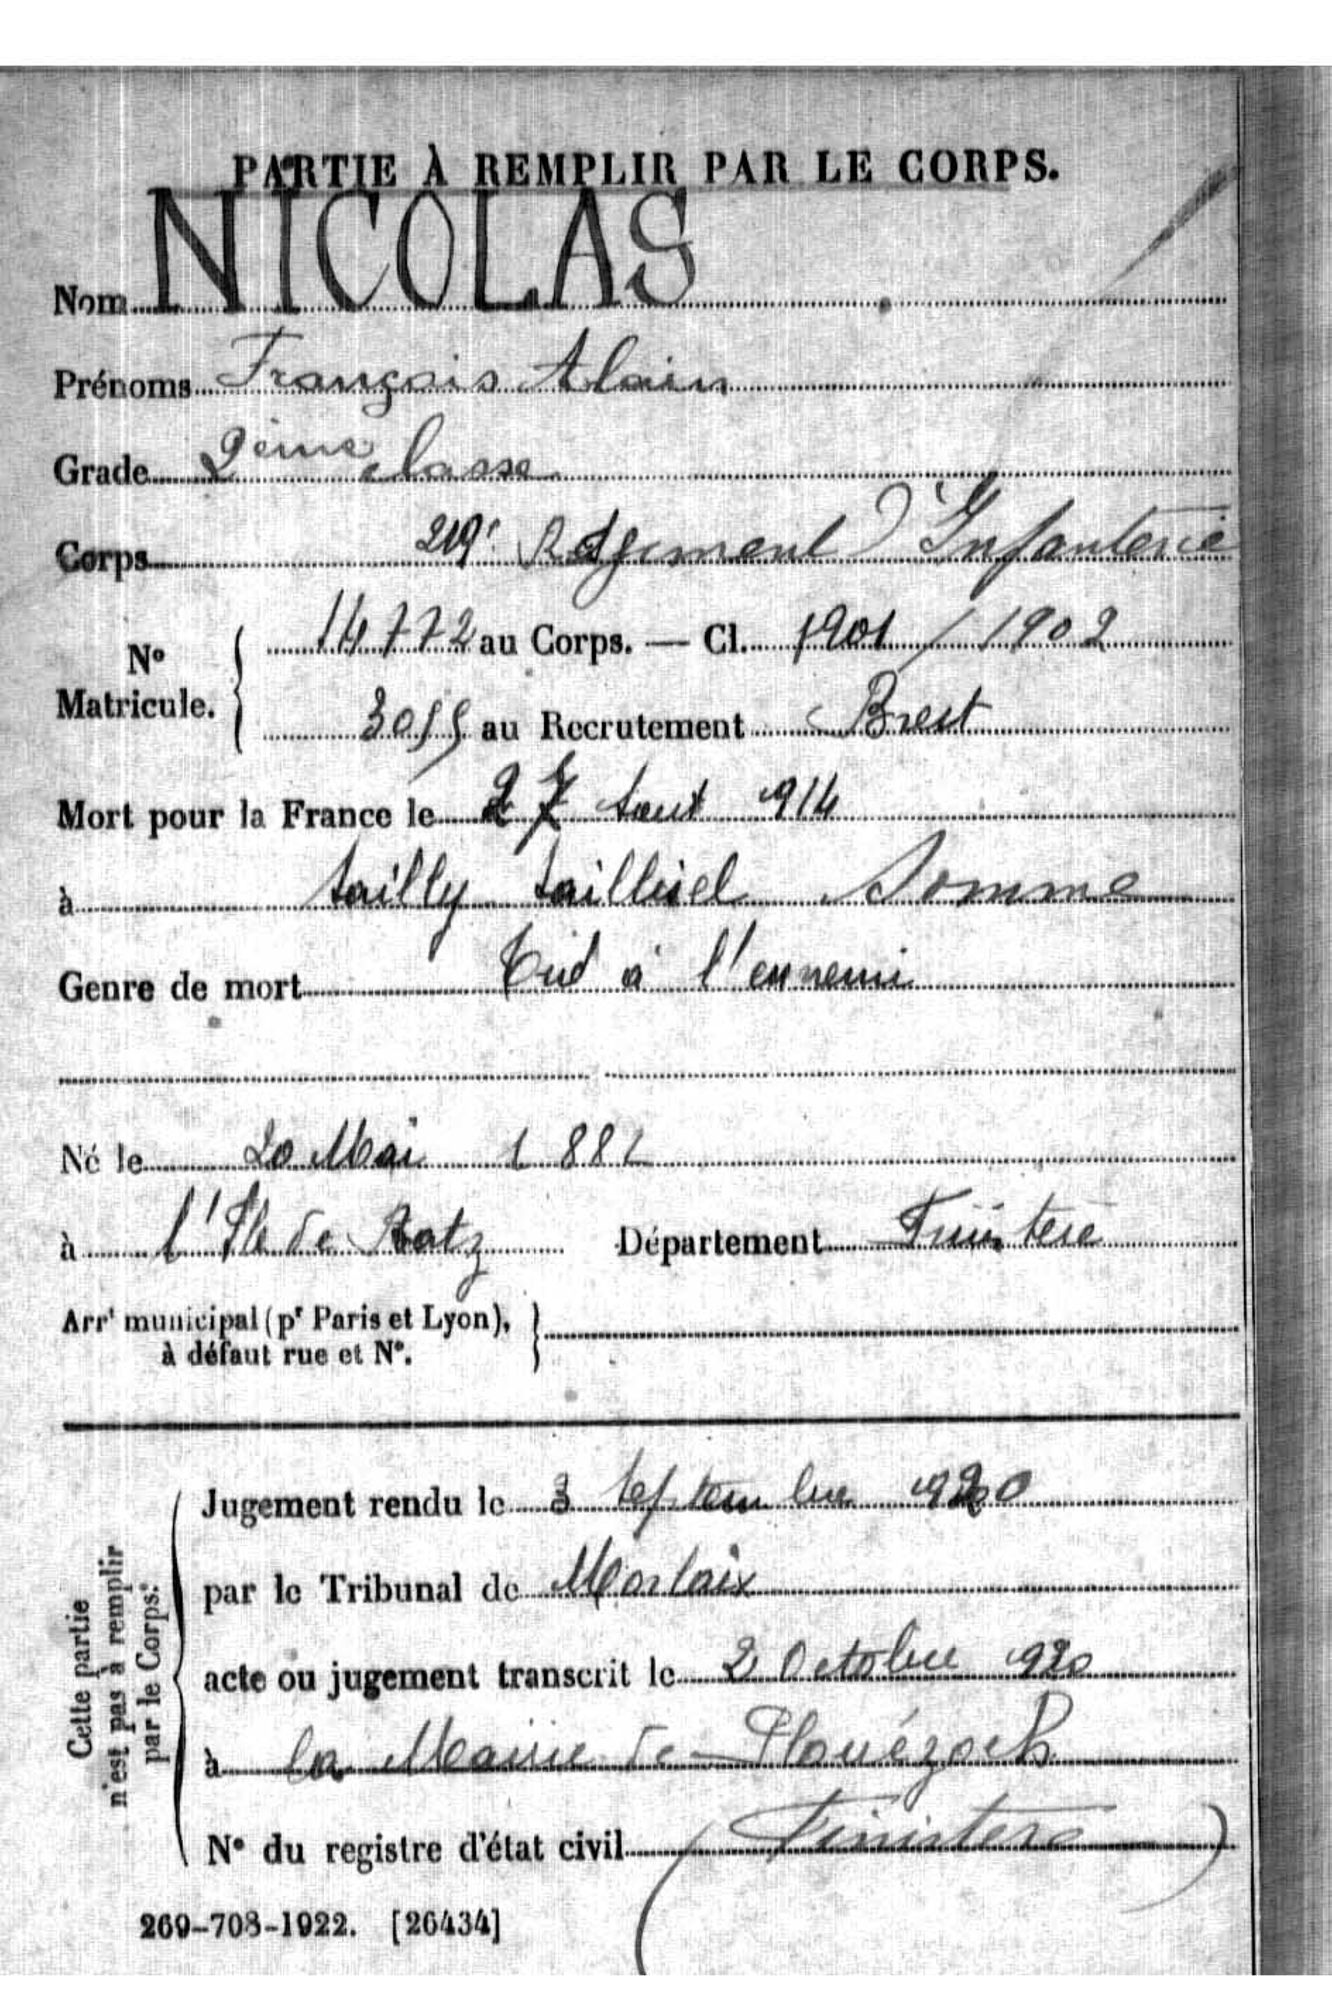 PARTIE À REMPLIR PAR LE CORPS.
Nom NICOLAS
Prénoms François Alain
Grade 2ème classe
Corps 219e Régiment d'Infanterie
No Matricule. { 14772 au Corps. — Cl. 1901 / 1902
3055 au Recrutement Brest
Mort pour la France le 27 Aout 1914
à Sailly Saillisel Somme
Genre de mort Tué à l'ennemi
Né le 20 Mai 1881
à l'Ile de Batz Département Finistère
Arrt municipal (pr Paris et Lyon), }
à défaut rue et No.
Cette partie
n'est pas à remplir
par le Corps.
Jugement rendu le 3 Septembre 1920
par le Tribunal de Morlaix
acte ou jugement transcrit le 2 Octobre 1920
à la Mairie de Plouézoch
No du registre d'état civil (Finistère)
269-708-1922. [26434]